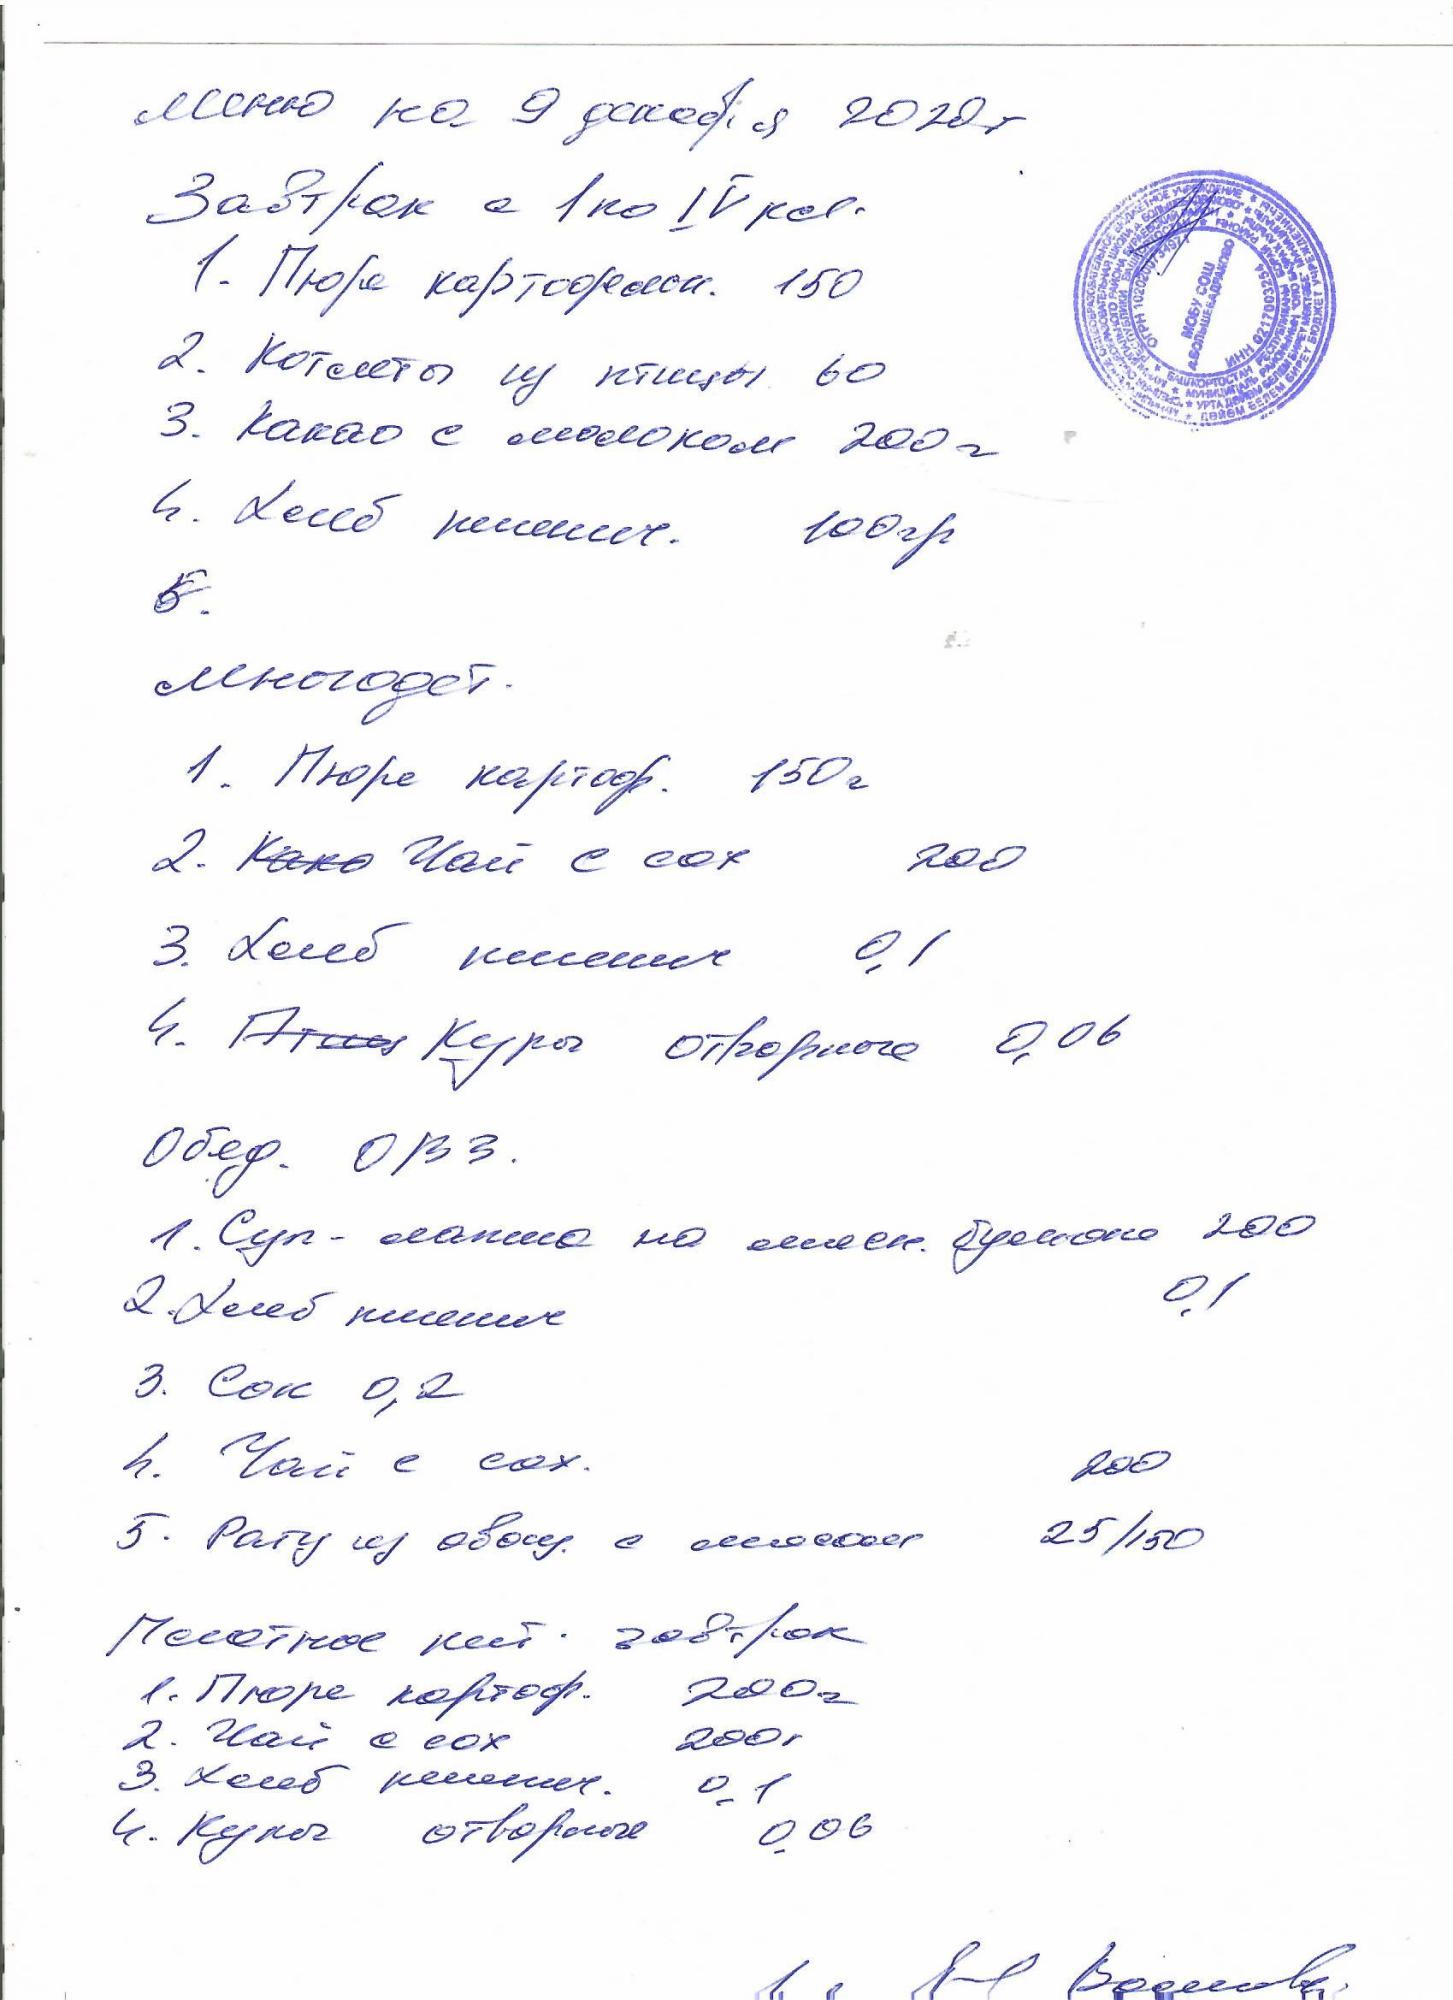 Меню на 9 декабря 2020г
Завтрак с 1 по IV кл.
1. Пюре картофельн. 150
2. Котлеты из птицы 60
3. Какао с молоком 200г
4. Хлеб пшенич. 100гр
5.
Многодет.
1. Пюре картоф. 150г
2. Како Чай с сах 200
3. Хлеб пшенич 0,1
4. Птица Куры отварные 0,06
Обед. ОВЗ.
1. Суп-лапша на мясн. бульоне 200
2. Хлеб пшенич 0,1
3. Сок 0,2
4. Чай с сах. 200
5. Рагу из овощ. с мясом 25/150
Платное пит. завтрак
1. Пюре картоф. 200г
2. Чай с сах 200г
3. Хлеб пшенич. 0,1
4. Куры отварные 0,06
МОБУ СОШ